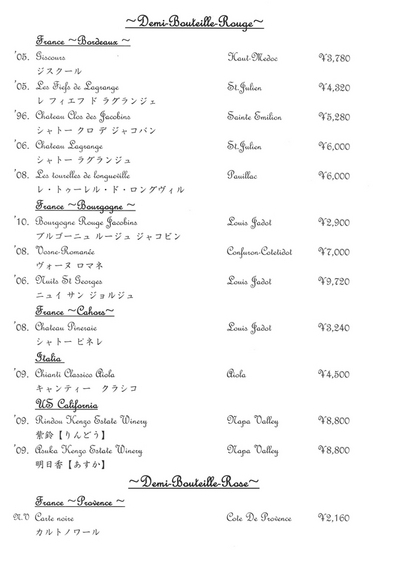 ~Demi-Bouteille-Rouge~
France ~Bordeaux ~
'05. Giscours Haut-Medoc ¥3,780
ジスクール
'05. Les Fiefs de Lagrange St.Julien ¥4,320
レ フィエフ ド ラグランジュ
'96. Chateau Clos des Jacobins Sainte Emilion ¥5,280
シャトー クロ デ ジャコバン
'06. Chateau Lagrange St.Julien ¥6,000
シャトー ラグランジュ
'08. Les tourelles de longueville Pauillac ¥6,000
レ・トゥーレル・ド・ロングヴィル
France ~Bourgogne ~
'10. Bourgogne Rouge Jacobins Louis Jadot ¥2,900
ブルゴーニュ ルージュ ジャコビン
'08. Vosne-Romanée Confuron-Cotetidot ¥7,000
ヴォーヌ ロマネ
'06. Nuits St Georges Louis Jadot ¥9,720
ニュイ サン ジョルジュ
France ~Cahors~
'08. Chateau Pineraie Louis Jadot ¥3,240
シャトー ピネレ
Italia
'09. Chianti Classico Aiola Aiola ¥4,500
キャンティー クラシコ
US California
'09. Rindou Kenzo Estate Winery Napa Valley ¥8,800
紫鈴【りんどう】
'09. Asuka Kenzo Estate Winery Napa Valley ¥8,800
明日香【あすか】
~Demi-Bouteille-Rose~
France ~Provence ~
N.V Carte noire Cote De Provence ¥2,160
カルトノワール